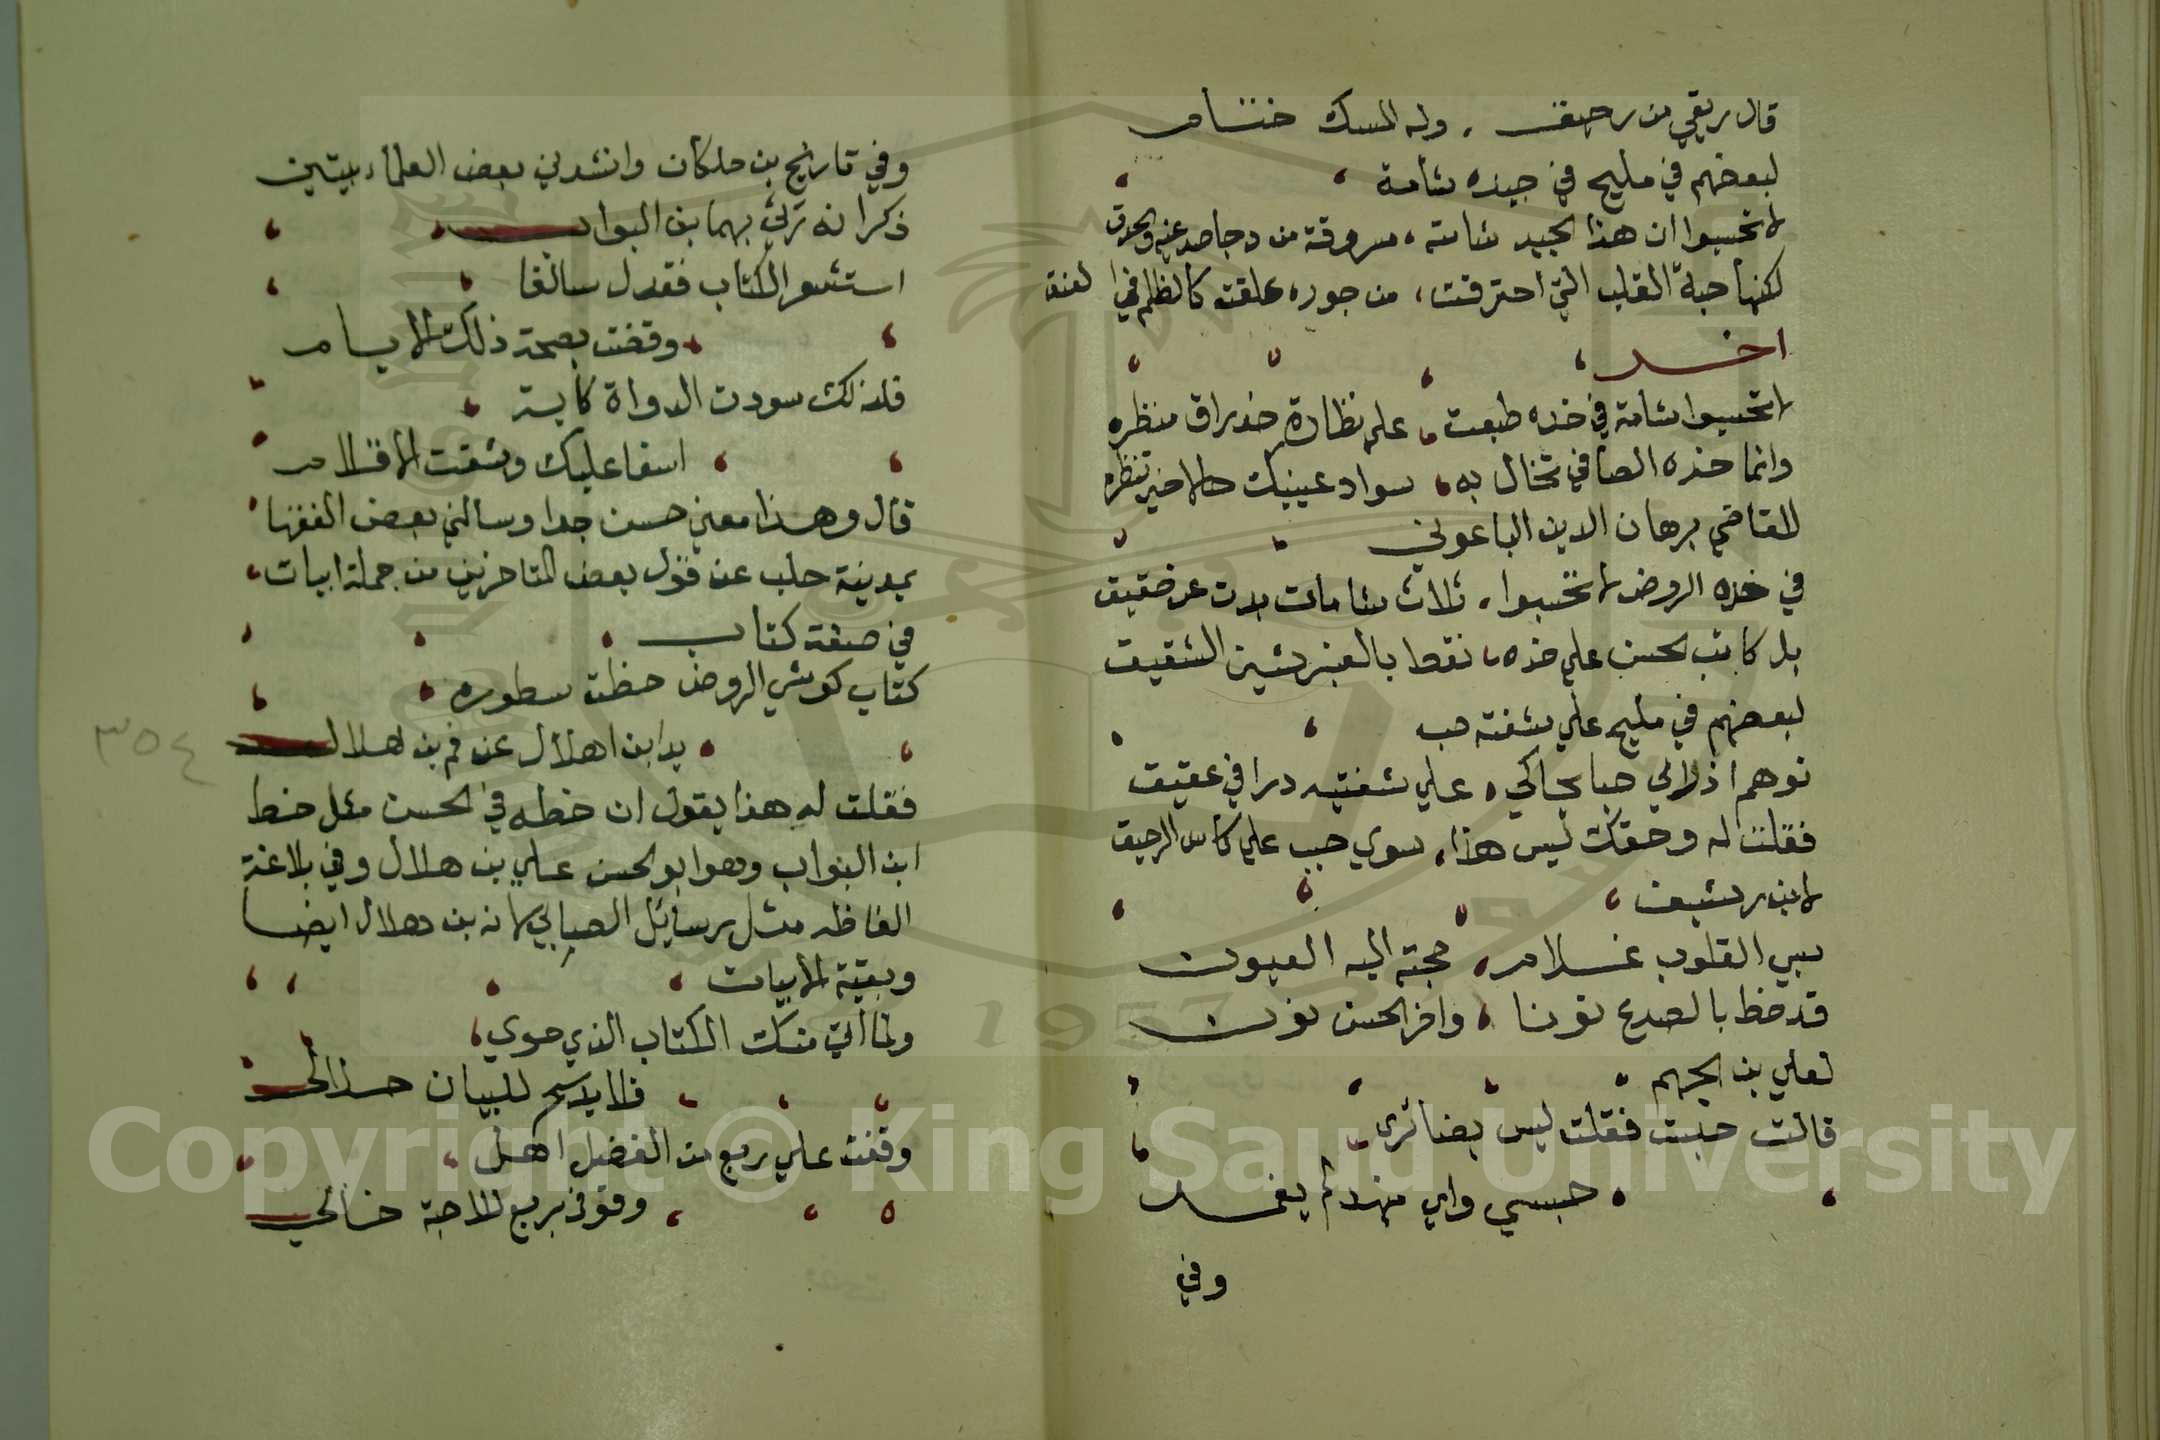 قال ريقي من رحيق ، وله المسك ختام
لبعضهم في مليح في جيده شامة
لا تحسبوا ان هذا الجيد شامته ، مسروقة من دجا صدغيه والحدق
لكنها حبة القلب التي احترقت ، من جوره علقت كالظلم في العنق
اخر
لا تحسبوا شامة في خده طبعت ، علي نظارة خد راق منظره
وانما خده الصافي تخال به ، سواد عينيك خالا حين تنظره
للقاضي برهان الدين الباعوني
في خده الروض لا تحسبوا ، ثلاث شامات بدت عن حقيق
بل كاتب الحسن علي خده ، نقط بالعنبر شين الشقيق
لبعضهم في مليح علي شفته حب
توهم اذ راي حبا يحاكي ، علي شفتيه درا في عقيق
فقلت له وحقك ليس هذا ، سوي حبب علي كاس الرحيق
لابن رشيق
يسبي القلوب غلام ، محبته اليه العيون
قد خط بالصدغ نونا ، واخر الحسن نون
لعلي بن الجهم
قالت حبست فقلت ليس بضائري
حبسي واي مهند لا يغمد
وفي
وفي تاريخ بن خلكان وانشدني بعض العلماء بيتين
ذكر انه رثي بهما بن البواب
استشعر الكتاب فقدك سالفا
وقضت بصحة ذلك الايام
فلذلك سودت الدواة كآبة
اسفا عليك وشقت الاقلام
قال وهذا معني حسن جدا وسالني بعض الفقها
بمدينة حلب عن قول بعض المتاخرين من جملة ابيات
في صفة كتاب
كتاب كوشي الروض خطت سطوره
يد ابن اهلال عن فم بن هلال
فقلت له هذا يقول ان خطه في الحسن مثل خط
ابن البواب وهو ابو الحسن علي بن هلال وفي بلاغة
الفاظه مثل رسائل الصابي لانه بن هلال ايضا
وبقية الابيات
ولما اتي منك الكتاب الذي حوي
قلايد سحر للبيان حلال
وقفت علي ربع من الفضل اهل
وقوفي بربع للاحبة خالي
٣٥٤
Copyright © King Saud University
1957